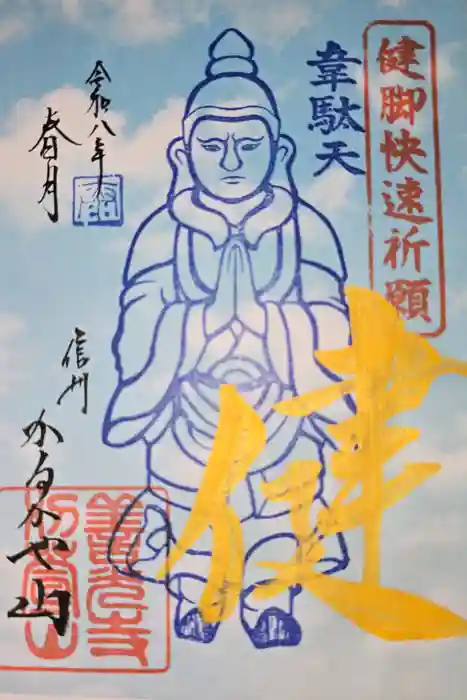 健脚快速祈願
韋駄天
令和八年
春月
健
信州
かるかや山
善光寺